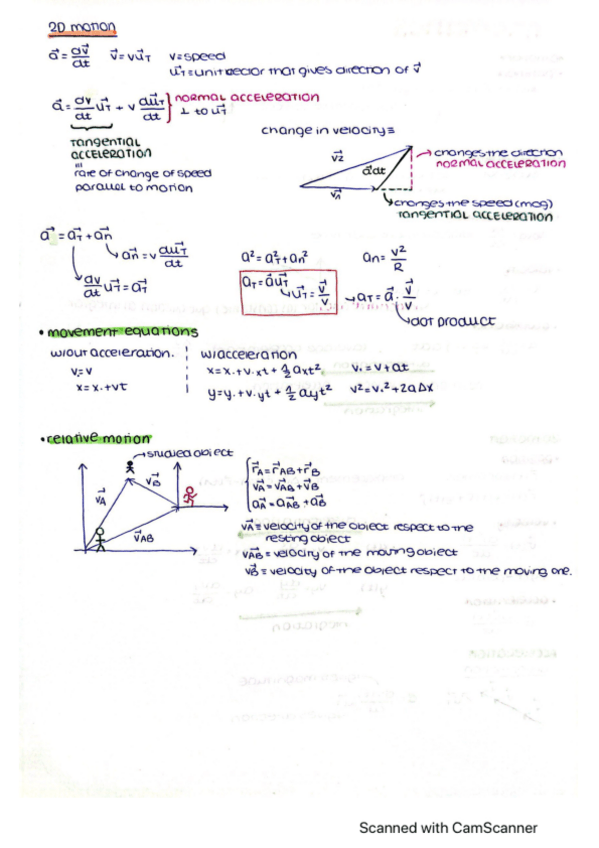 2D motion
a⃗ = dv⃗/dt   v⃗ = vu⃗T   v = speed
u⃗T = unit vector that gives direction of v⃗
a⃗ = dv/dt u⃗T + v du⃗T/dt } NORMAL ACCELERATION
⊥ to u⃗T
TANGENTIAL
ACCELERATION
rate of change of speed
parallel to motion
change in velocity ≡
v⃗2
a⃗dt
v⃗1
→ changes the direction
NORMAL ACCELERATION
↳ changes the speed (mag)
TANGENTIAL ACCELERATION
a⃗ = a⃗T + a⃗n
a⃗n = v du⃗T/dt
dv/dt u⃗T = a⃗T
a² = aT² + an²   an = v²/R
aT = a⃗u⃗T
↳ u⃗T = v⃗/v   → aT = a⃗ · v⃗/v
↳ dot product
• movement equations
w/out acceleration.   w/acceleration
v. = v   x = x. + v.xt + 1/2 axt²   v. = v + at
x = x. + vt   y = y. + v.yt + 1/2 ayt²   v² = v.² + 2aΔx
• relative motion
→ studied object
v⃗A
v⃗B
v⃗AB
r⃗A = r⃗AB + r⃗B
v⃗A = v⃗AB + v⃗B
a⃗A = a⃗AB + a⃗B
v⃗A ≡ velocity of the object respect to the
resting object
v⃗AB = velocity of the moving object
v⃗B ≡ velocity of the object respect to the moving one.
Scanned with CamScanner